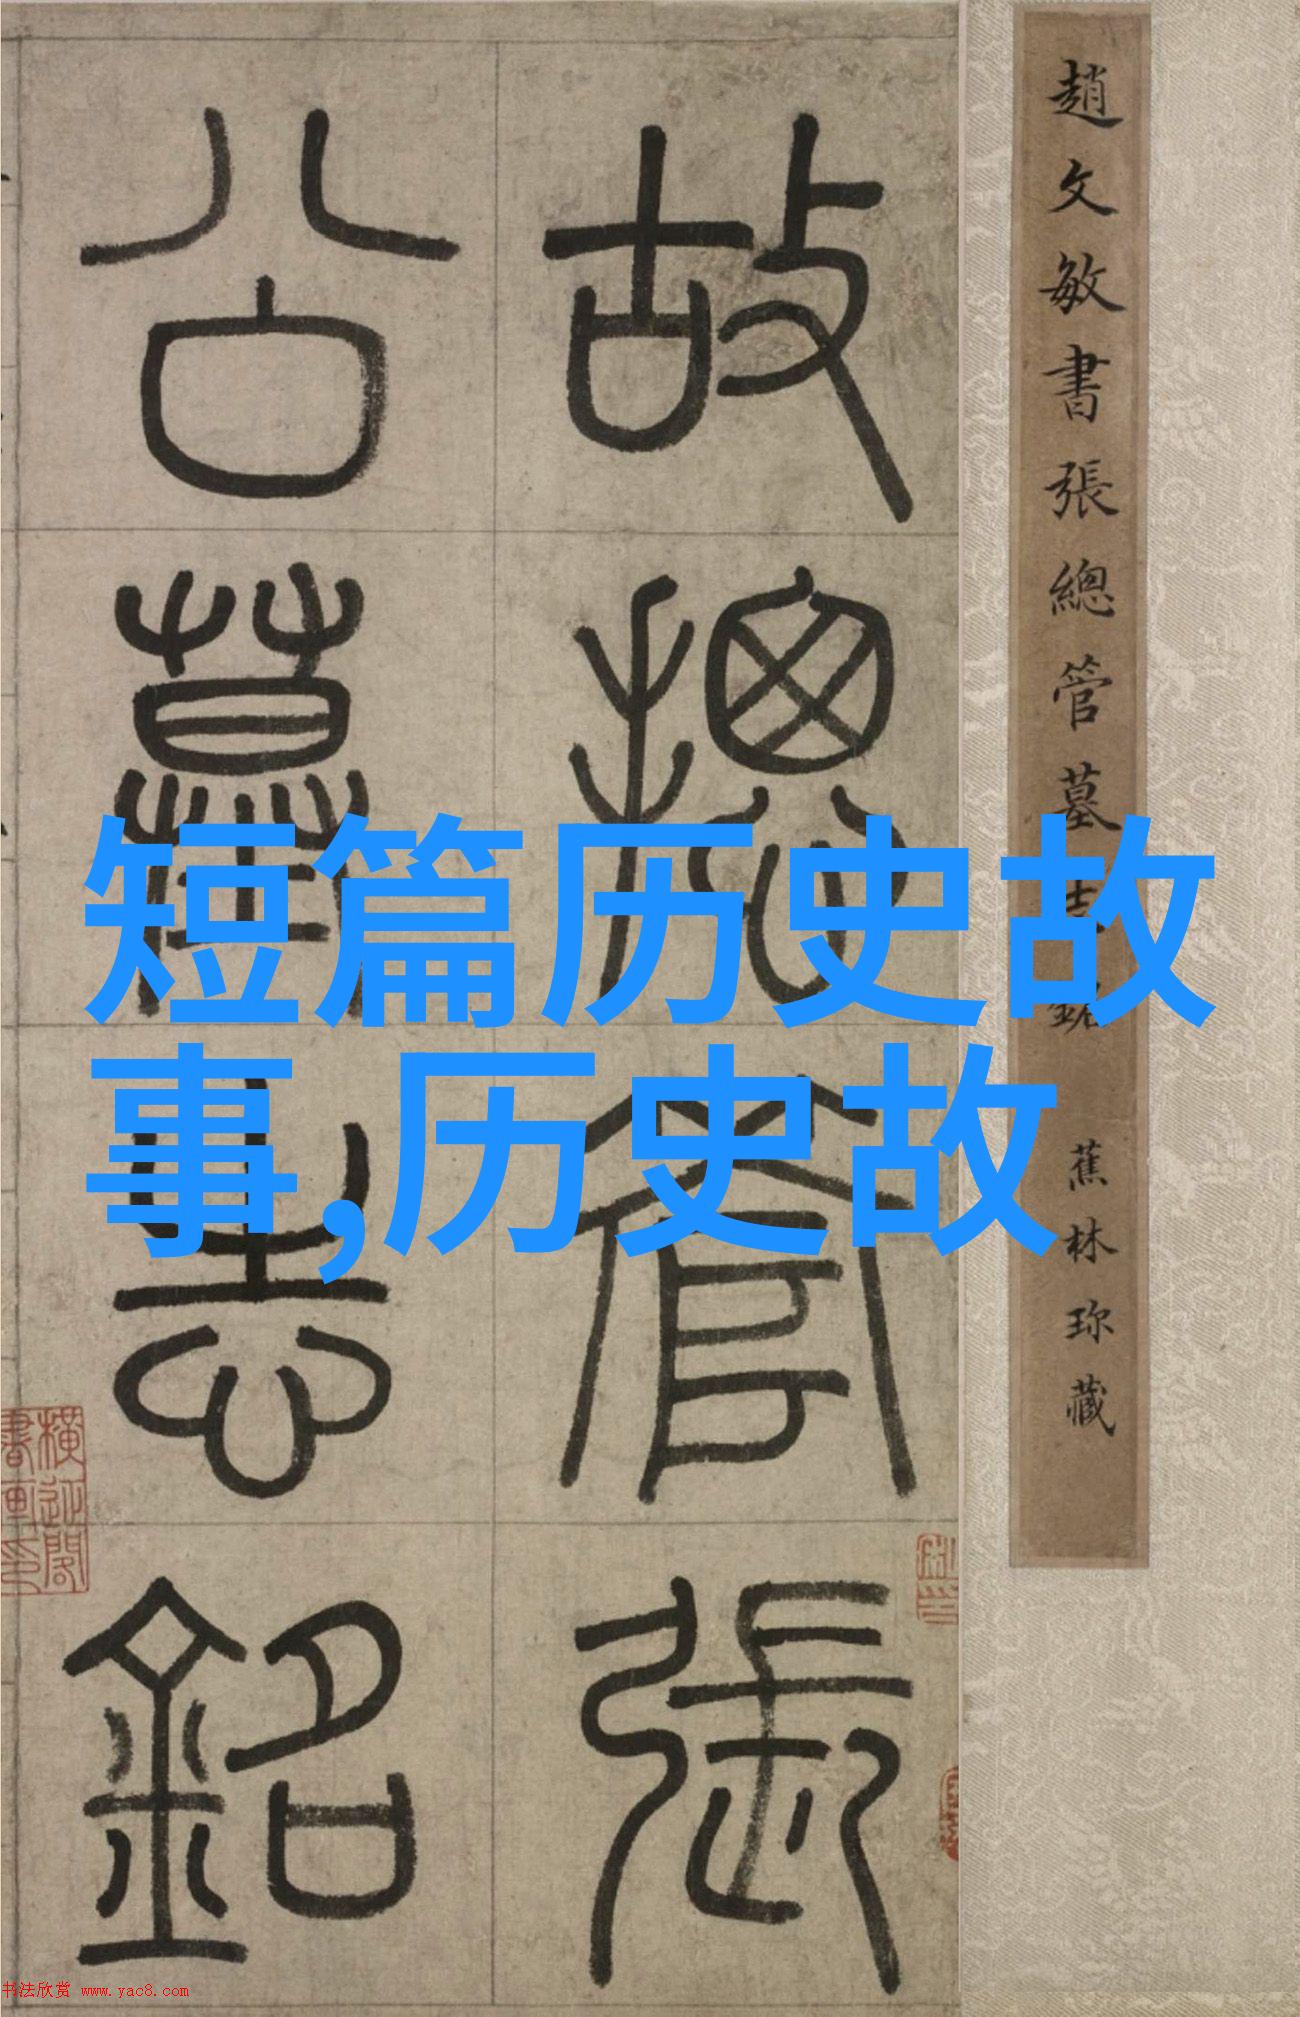 趙文敏書張總管墓志銘 蕉林珎藏
故揔管張
公墓志銘
短篇历史故
事,历史故
横近閣
書画印
书法欣赏 www.yac8.com